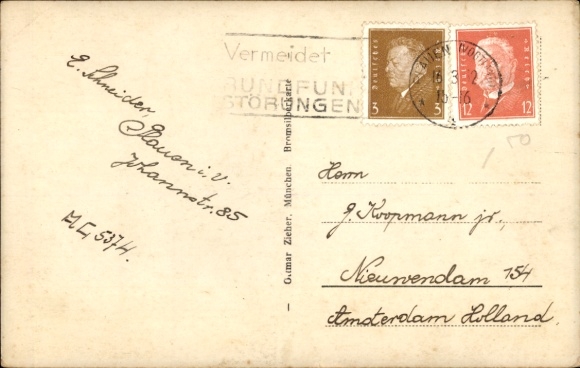 E. Schneider,
Plauen i. V.
Johannstr. 85
5374.
Vermeidet
RUNDFUN
STÖRUNGEN
Deutsches
3 3
12 12
PLAUEN (VOGTL)
15-16
Ottmar Zieher, München. Bromsilberkarte
Herrn
J. Koopmann jr.,
Nieuwendam 154
Amsterdam Holland.